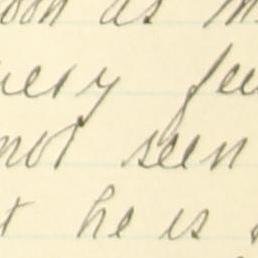 soon as
very few
not seen
t he is